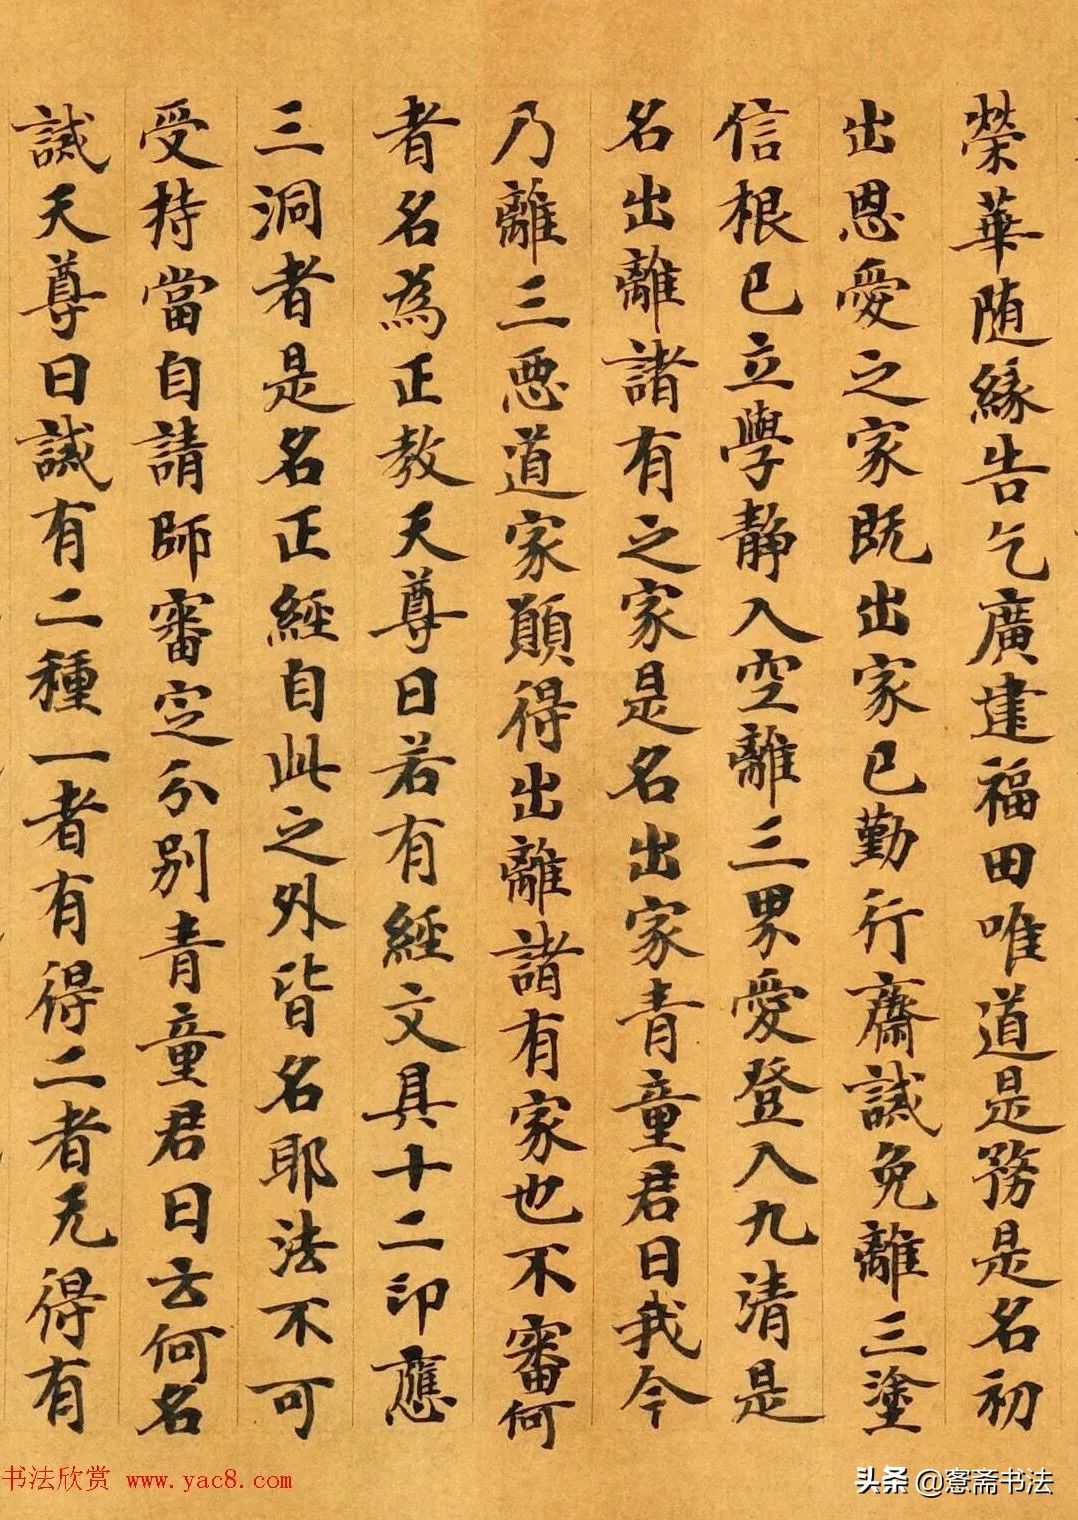 榮華随緣告乞廣建福田唯道是務是名初
出恩愛之家既出家已勤行齋誡免離三塗
信根已立學静入空離三界愛登入九清是
名出離諸有之家是名出家青童君曰我今
乃離三惡道家願得出離諸有家也不審何
者名為正教天尊曰若有經文具十二印應
三洞者是名正經自此之外皆名耶法不可
受持當自請師審定分别青童君曰云何名
誡天尊曰誡有二種一者有得二者无得有
书法欣赏 www.yac8.com
头条 @愙斋书法